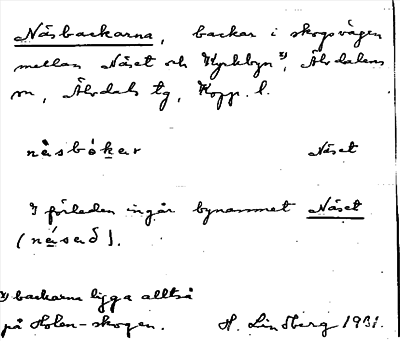 Näsbackarna, backar i skogsvägen
mellan Näset och Kyrkbyn x), Älvdalens
sn, Älvdals tg, Kopp. l.
näsbåkar Näset
I förleden ingår bynamnet Näset
(näsað).
x) backarna ligga alltså
på Holen-skogen. H. Lindberg 1931.